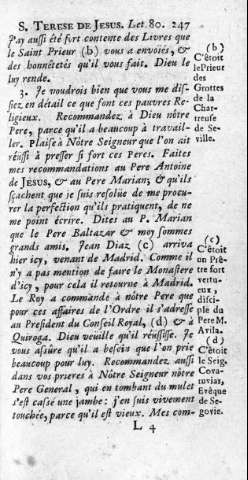 S. TERESE DE JESUS. Let. 80. 247
J'ay aussi été fort contente des Livres que
le Saint Prieur (b) vous a envoiés, &
des honnêtetés qu'il vous fait. Dieu le
luy rende.
3. Je voudrois bien que vous me dis-
siez en détail ce que font ces pauvres Re-
ligieux. Recommandez à Dieu nôtre
Pere, parce qu'il a beaucoup à travail-
ler. Plaise à Nôtre Seigneur que l'on ait
réüssi à presser si fort ces Peres. Faites
mes recommandations au Pere Antoine
de JESUS, & au Pere Marian; & qu'ils
sçachent que je suis resoluë de me procu-
rer la perfection qu'ils pratiquent, de ne
me point écrire. Dites au P. Marian
que le Pere Baltazar & moy sommes
grands amis. Jean Diaz (c) arriva
hier icy, venant de Madrid. Comme il
n'y a pas mention de faire le Monastere
d'icy, pour cela il retourne à Madrid.
Le Roy a commandé à nôtre Pere que
pour ces affaires de l'Ordre il s'adresse
au President du Conseil Royal, (d) & à
Quiroga. Dieu veuille qu'il réüssisse. Je
vous assûre qu'il a besoin que l'on prie
beaucoup pour luy. Recommandez aussi
dans vos prieres à Nôtre Seigneur nôtre
Pere General, qui en tombant du mulet
s'est cassé une jambe: j'en suis vivement
touchée, parce qu'il est vieux. Mes com-
L 4
(b)
C'étoit
le Prieur
des
Grottes
de la
Char-
treuse
de Se-
ville.
(c)
C'étoit
un Prê-
tre fort
vertu-
eux,
disci-
ple du
Pere M.
Avila.
(d)
C'étoit
le Seig.
Cova-
ruvias,
Evêque
de Se-
govie.